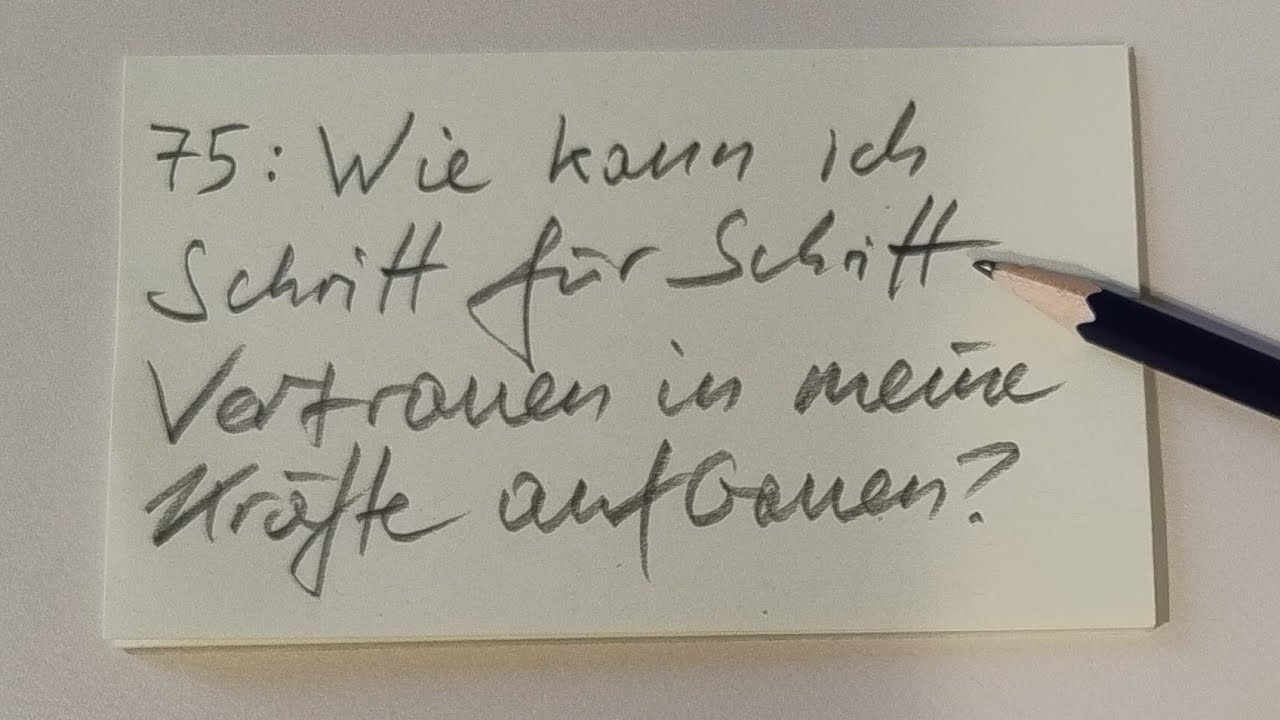 75: Wie kann ich
Schritt für Schritt
Vertrauen in meine
Kräfte aufbauen?